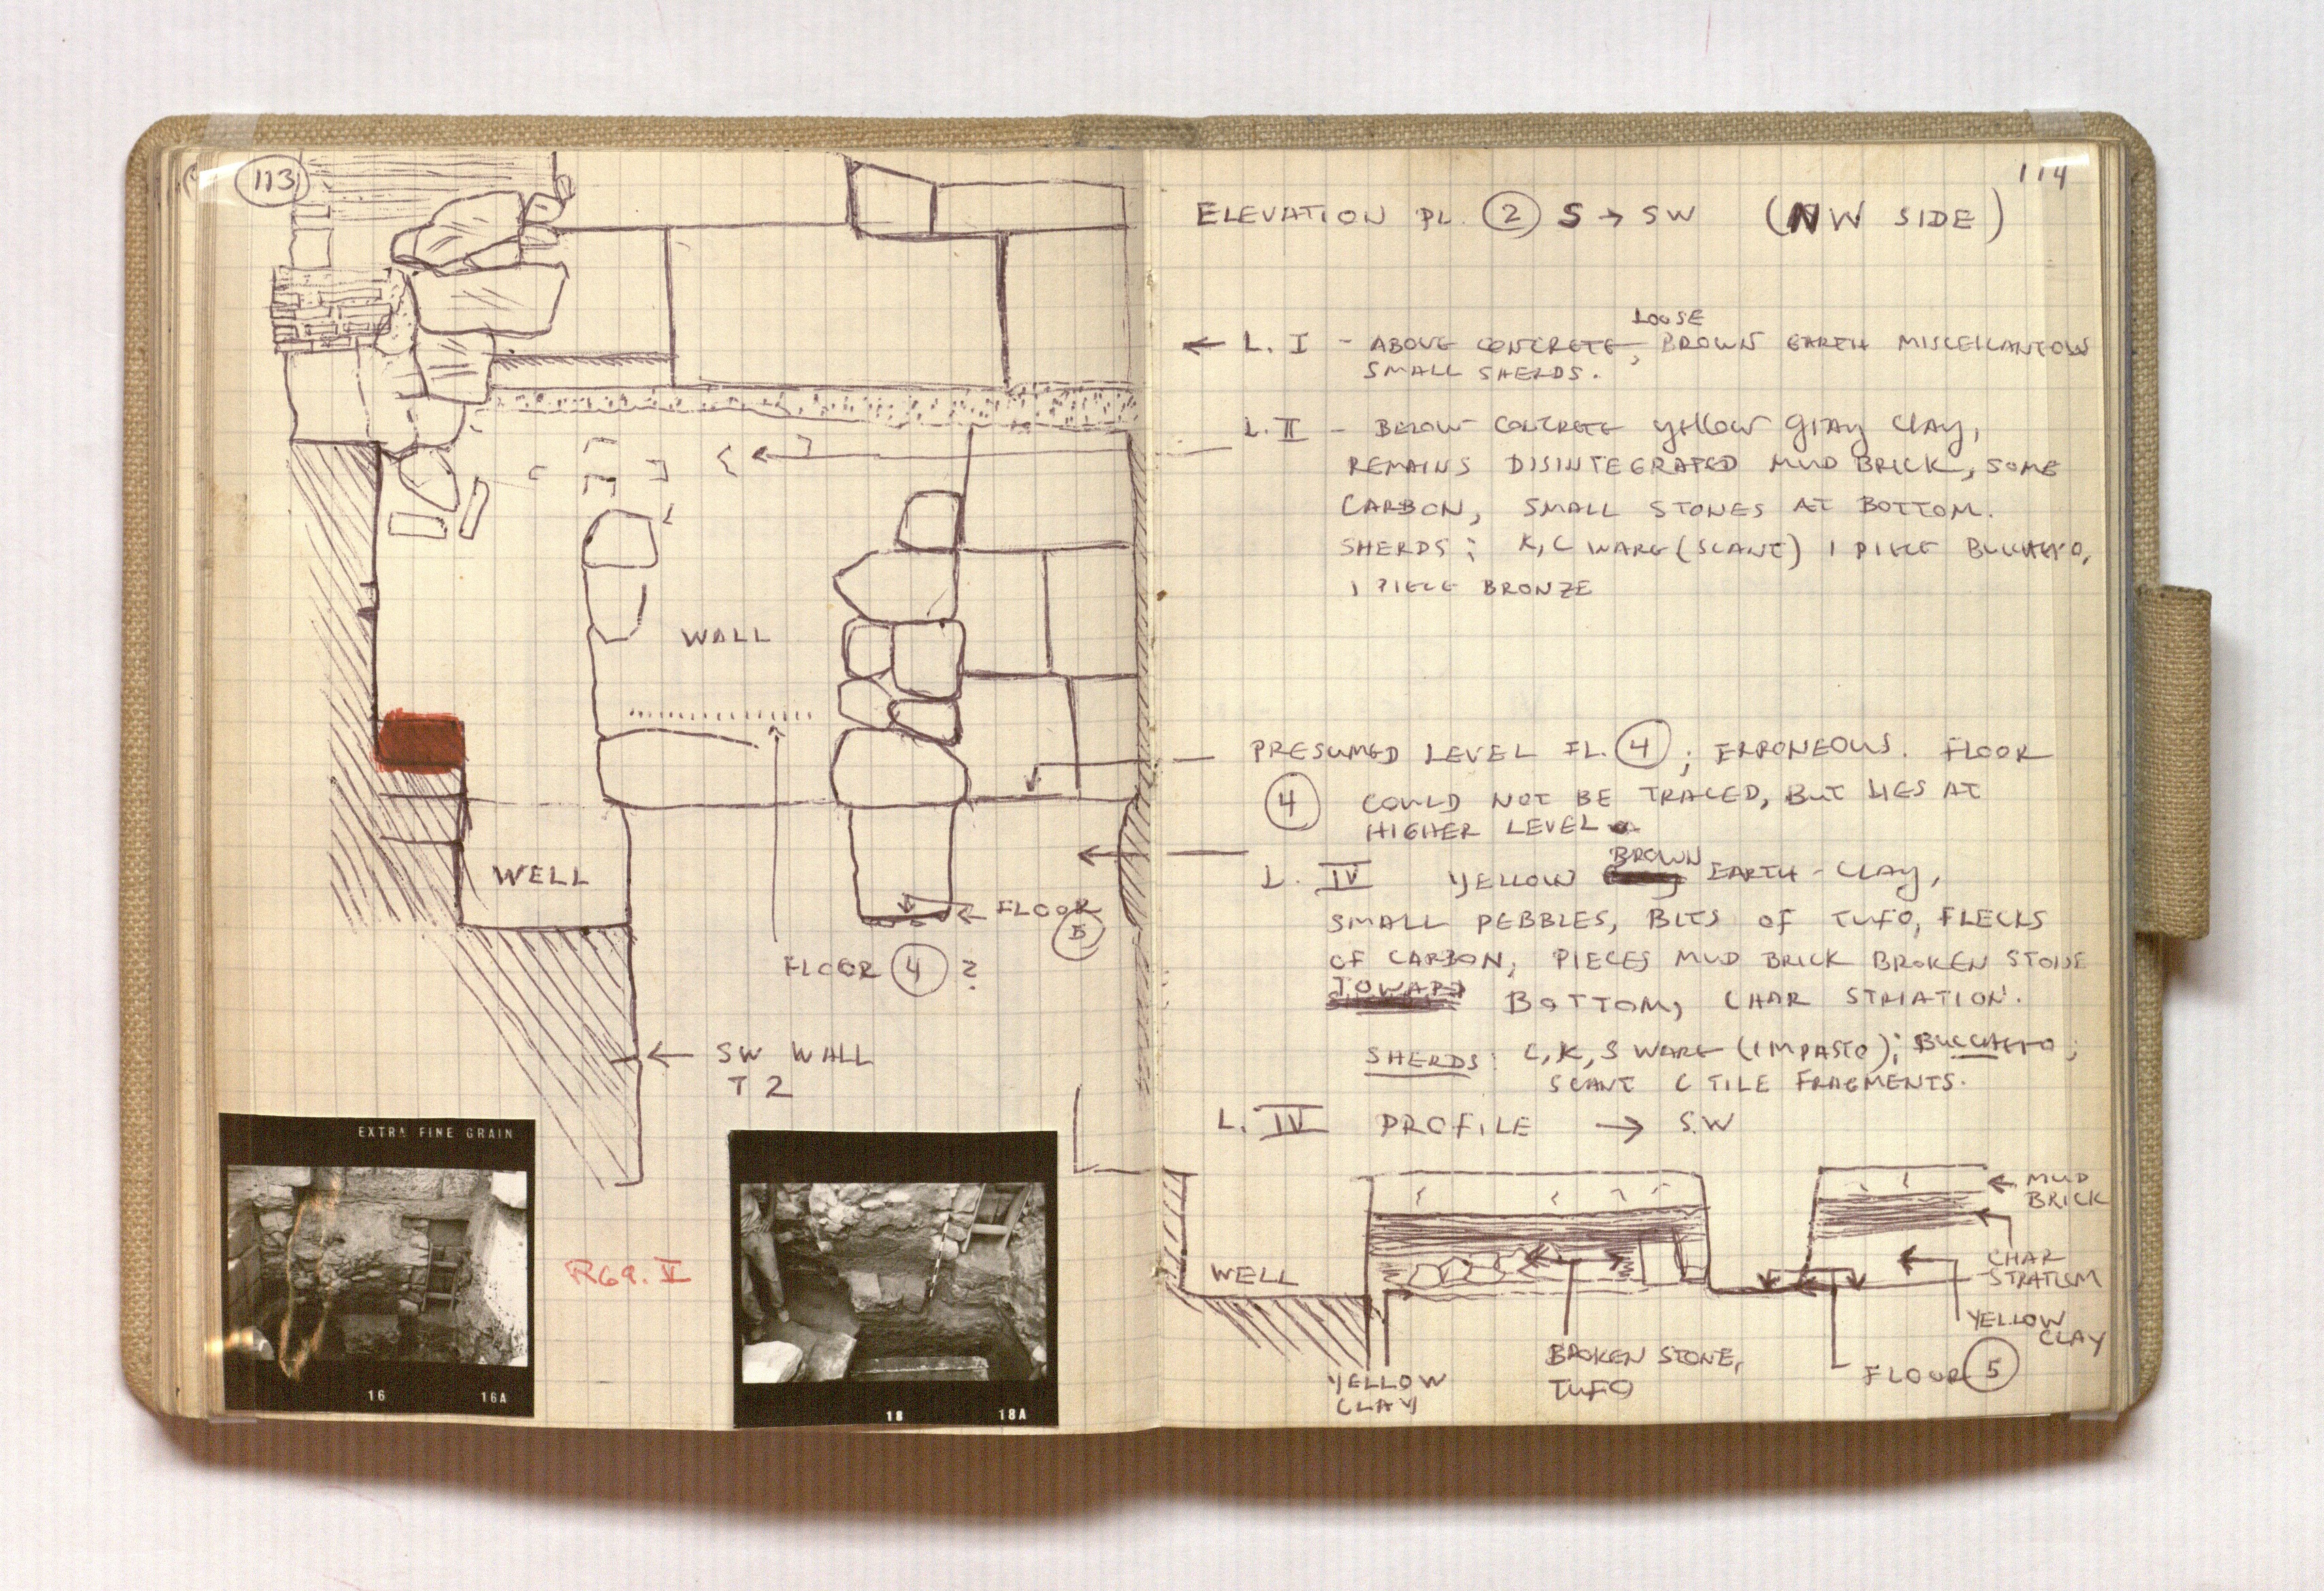 113
WALL
WELL
FLOOR
5
FLOOR 4 ?
SW WALL
T 2
EXTRA FINE GRAIN
16 16A
R69. V
18 18A
114
ELEVATION PL. 2 S → SW (NW SIDE)
LOOSE
← L. I - ABOVE CONCRETE, BROWN EARTH MISCELLANEOUS
SMALL SHERDS.
L. II - BELOW CONCRETE YELLOW GRAY CLAY,
REMAINS DISINTEGRATED MUD BRICK, SOME
CARBON, SMALL STONES AT BOTTOM.
SHERDS: K, C WARE (SCANT) 1 PIECE BUCCHERO,
1 PIECE BRONZE
PRESUMED LEVEL FL. 4; ERRONEOUS. FLOOR
4 COULD NOT BE TRACED, BUT LIES AT
HIGHER LEVEL
BROWN
L. IV YELLOW EARTH - CLAY,
SMALL PEBBLES, BITS OF TUFO, FLECKS
OF CARBON, PIECES MUD BRICK BROKEN STONE
TOWARD
BOTTOM, CHAR STRIATION.
SHERDS: C, K, S WARE (IMPASTO); BUCCHERO;
SCANT C TILE FRAGMENTS.
L. IV PROFILE → SW
MUD
BRICK
WELL
CHAR
STRATUM
YELLOW
CLAY
BROKEN STONE,
TUFO
FLOOR 5
YELLOW
CLAY